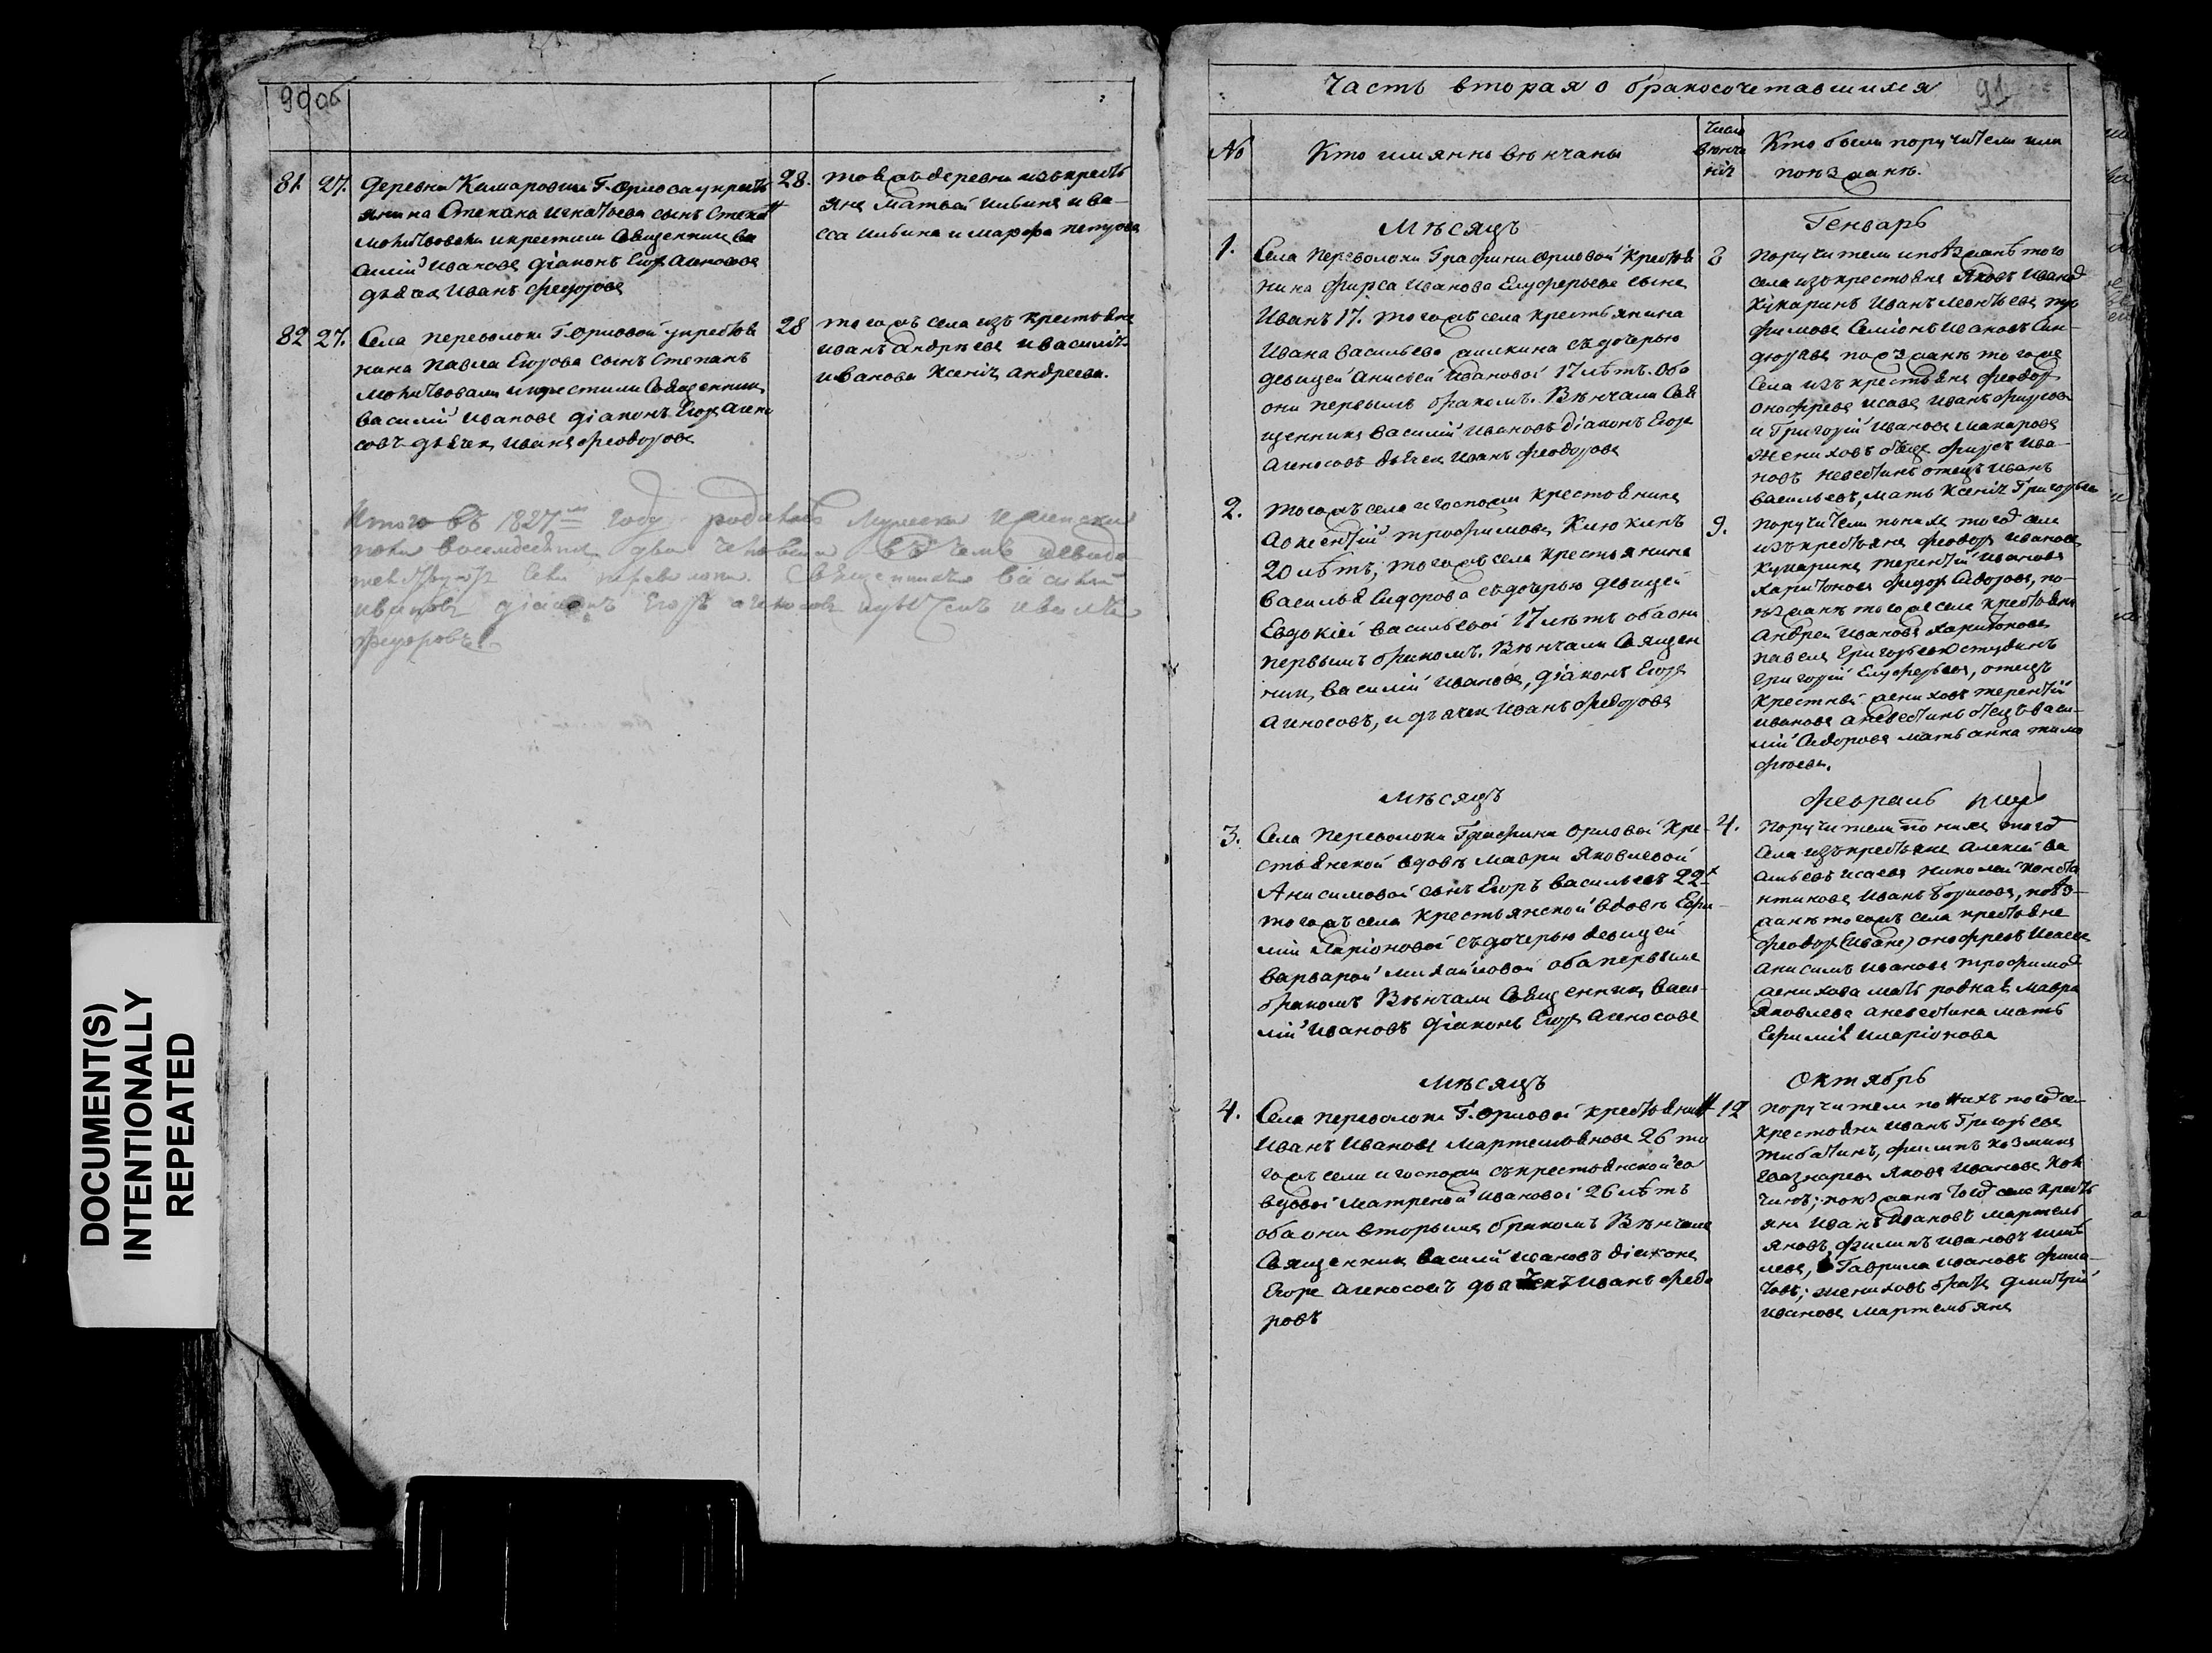 90об
81. 27. Деревни Камаровки Г. Орлова у кресть
янина Степана Игнатьева сынъ Степанъ
молитвовали и крестили Священникъ Ва
силій Ивановъ діаконъ Егоръ Агносовъ
дьячекъ Иванъ Федоровъ
28. тояжъ деревни изъ крестья
янъ Матвей Ильинъ и Ва-
сса Ильина и Марфа Петрова
82 27. Села Переволоки Г. Орловой у крестья
нина Павла Егорова сынъ Степанъ
молитвовали и крестили Священникъ
Василій Ивановъ діаконъ Егоръ Агно
совъ дьячекъ Иванъ Феодоровъ
28 тогожъ села изъ крестьянъ
Иванъ Андреевъ и Василій
Иванова Ксенія Андреева.
Итого въ 1827мъ году родилось мужеска и женска
пола восемдесятъ два человека въ чемъ
села Переволоки Священникъ Василій
Ивановъ діаконъ Егоръ Агносовъ дьячекъ Иванъ
Федоровъ
Часть вторая о бракосочетавшихся 91
№ Кто имянно венчаны
Число венча нія
Кто были поручители или
поезжане.
Мѣсяцъ Генварь
1. Села Переволоки Графини Орловой Крестья
нина Фирса Иванова Елуферьева сынъ
Иванъ 17. тогожъ села крестьянина
Ивана Васильева съ дочерью
девицей Анисьей Ивановой 17 лѣтъ. Оба
они первымъ бракомъ. Вѣнчали Свя
щенникъ Василій Ивановъ діаконъ Егоръ
Агносовъ дьячекъ Иванъ Феодоровъ
8 Поручители и поезжанѣ того
села изъ крестьянъ Яковъ Иванов
Кукаринъ Иванъ Леонтьевъ Тро
фимовъ Семіонъ Ивановъ
поезжанѣ тогоже
села изъ крестьянъ Феодоръ
Онофревъ Исаевъ Иванъ
и Григорій Ивановъ Макаровъ
Жениховъ отецъ Фирсъ Ива-
новъ невестинъ отецъ Иванъ
Васильевъ, мать Ксенія Григорьева
2. тогожъ села и госпожи крестьянинъ
Трофимовъ Клюкинъ
20 лѣтъ, тогожъ села крестьянина
Василья Сидорова съ дочерью девицей
Евдокіей Васильевой 17 лѣтъ оба они
первымъ бракомъ. Вѣнчали Священ
никъ, Василій Ивановъ, діаконъ Егоръ
Агносовъ, и дьячекъ Иванъ Федоровъ
9. поручители по нихъ того села
изъ крестьянъ Феодоръ Ивановъ
Кукаринъ Терентій Ивановъ
Харитоновъ Федоръ Сидоровъ, по-
езжанѣ тогоже села крестьяне
Андрей Ивановъ Харитоновъ
Павелъ Григорьевъ
Григорій Елуферьевъ, отецъ
крестный жениховъ Терентій
Ивановъ а невестинъ отецъ Васи-
лій Сидоровъ мать Анна Тимо
феева.
Мѣсяцъ Февраль
3. Села Переволоки Графини Орловой Кре-
стьянской вдовы Мавры Яковлевой
Анисимовой сынъ Егоръ Васильевъ 22х
тогожъ села Крестьянской вдовы Ефи
міи Ларіоновой съ дочерью девицей
Варварой Михайловой оба первымъ
бракомъ Вѣнчали Священникъ Васи-
лій Ивановъ діаконъ Егоръ Агносовъ
4. Поручители по нихъ того
села изъ крестьянъ Алексей Ва
сильевъ Исаевъ Николай Конста
нтиновъ Иванъ Борисовъ, поез-
жанѣ тогожъ села крестьяне
Феодоръ (Иванъ) Онофревъ Исаевъ
Анисимъ Ивановъ Трофимов
женихова мать родная Мавра
Яковлева а невестина мать
Ефимія Иларіонова
Мѣсяцъ Октябрь
4. Села Переволоки Г. Орловой крестьянинъ
Иванъ Ивановъ Мартемьяновъ 26 то
гожъ села и госпожи съ крестьянской со
вдовой Матреной Ивановой 26 лѣтъ
оба они вторымъ бракомъ Вѣнчали
Священникъ Василій Ивановъ діаконъ
Егоръ Агносовъ дьячекъ Иванъ Федо
ровъ
12 поручители по нихъ того се-
крестьяне Иванъ Григорьевъ
Филипъ Козминъ
Яковъ Ивановъ
поезжанѣ того села кресть
яне Иванъ Ивановъ Мартемь
яновъ, Филипъ Ивановъ
Гаврила Ивановъ
жениховъ братъ Дмитрій
Ивановъ Мартемьянъ
DOCUMENT(S)
INTENTIONALLY
REPEATED